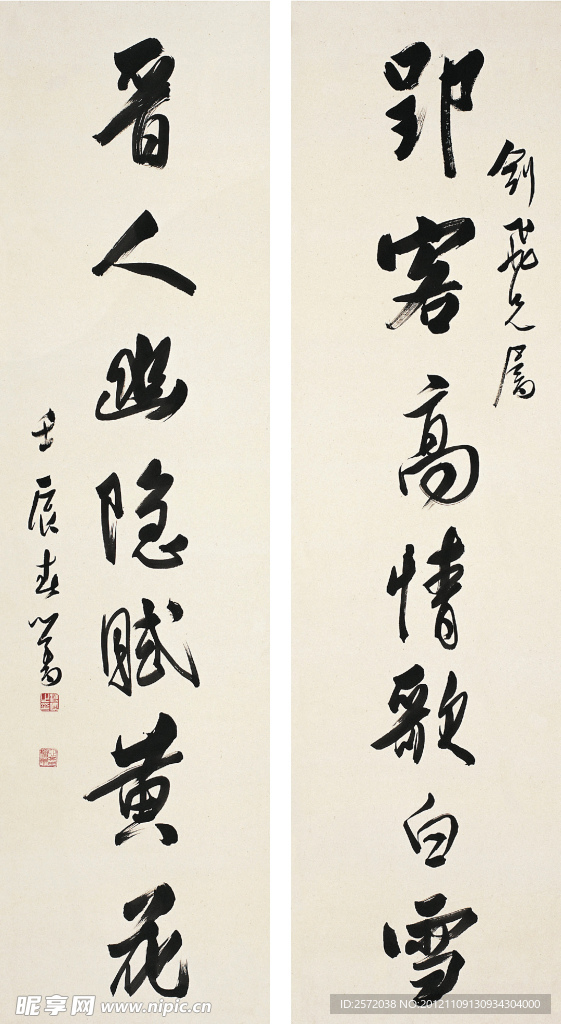 剑飞兄属
郢客高情歌白雪
晋人幽隐赋黄花
壬辰春心畬
昵享网 www.nipic.cn
ID:2572038 NO:20121109130934304000